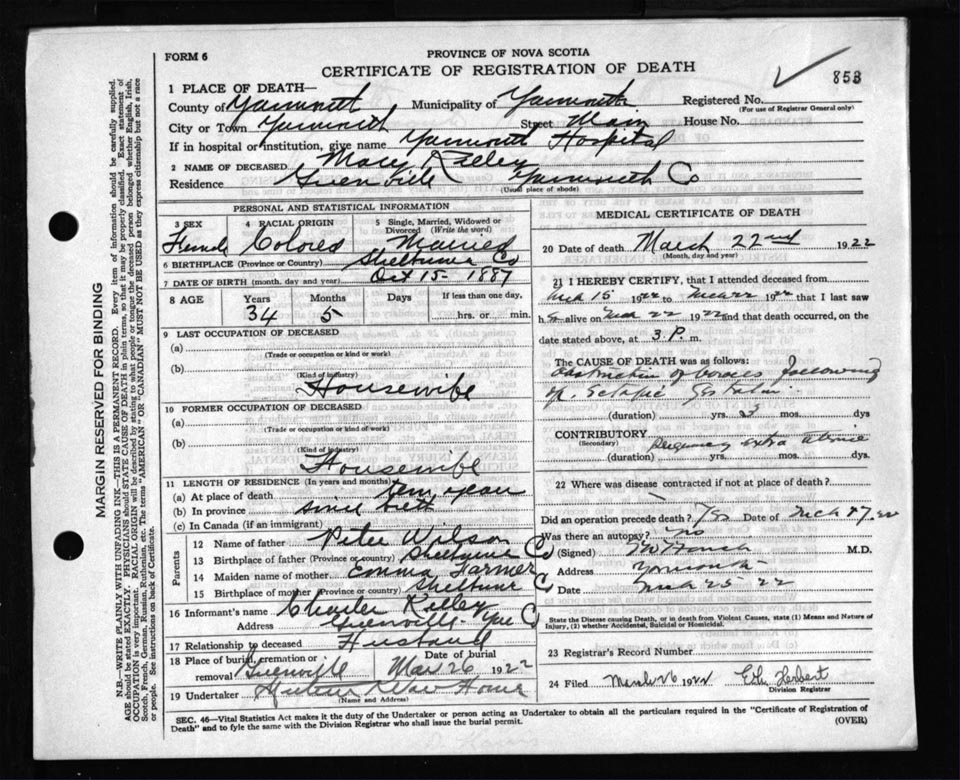 FORM 6
PROVINCE OF NOVA SCOTIA
CERTIFICATE OF REGISTRATION OF DEATH
853
1 PLACE OF DEATH—
County of Yarmouth Municipality of Yarmouth Registered No.
(For use of Registrar General only)
City or Town Yarmouth Street Main House No.
If in hospital or institution, give name Yarmouth Hospital
2 NAME OF DECEASED Mary Kelley
Residence Greenville Yarmouth Co
(Usual place of abode)
PERSONAL AND STATISTICAL INFORMATION
3 SEX 4 RACIAL ORIGIN 5 Single, Married, Widowed or Divorced (Write the word)
Female Colored Married
6 BIRTHPLACE (Province or Country) Shelburne Co
7 DATE OF BIRTH (month, day and year) Oct 15 1887
8 AGE Years Months Days If less than one day,
34 5 hrs. or min.
9 LAST OCCUPATION OF DECEASED
(a)
(Trade or occupation or kind or work)
(b)
(Kind of industry)
Housewife
10 FORMER OCCUPATION OF DECEASED
(a)
(Trade or occupation or kind of work)
(b)
(Kind of industry)
Housewife
11 LENGTH OF RESIDENCE (In years and months)
(a) At place of death ten years
(b) In province since birth
(c) In Canada (if an immigrant)
Parents
12 Name of father Peter Wilson
13 Birthplace of father (Province or country) Shelburne Co
14 Maiden name of mother Emma Farmer
15 Birthplace of mother (Province or country) Shelburne Co
16 Informant's name Charles Kelley
Address Greenville Yar Co
17 Relationship to deceased Husband
18 Place of burial, cremation or removal Greenville Date of burial Mar 26 1922
19 Undertaker
(Name and Address)
MEDICAL CERTIFICATE OF DEATH
20 Date of death March 22nd 1922
(Month, day and year)
21 I HEREBY CERTIFY, that I attended deceased from
Mch 15 1922 to Mch 22 1922 that I last saw
h alive on Mch 22 1922 and that death occurred, on
date stated above, at 3 P. m.
The CAUSE OF DEATH was as follows:
Obstruction of bowels following
(duration) yrs. 3 mos. dys
CONTRIBUTORY
(Secondary)
(duration) yrs. mos. dys.
22 Where was disease contracted if not at place of death?
Did an operation precede death? Yes Date of Mch 17, 22
Was there an autopsy? no
(Signed) M.D.
Address Yarmouth
Date Mch 25 22
State the Disease causing Death, or in death from Violent Causes, state (1) Means and Nature of Injury, (2) whether Accidental, Suicidal or Homicidal.
23 Registrar's Record Number
24 Filed March 26 1922 Herbert
Division Registrar
SEC. 46—Vital Statistics Act makes it the duty of the Undertaker or person acting as Undertaker to obtain all the particulars required in the "Certificate of Registration of
Death" and to fyle the same with the Division Registrar who shall issue the burial permit.
(OVER)
MARGIN RESERVED FOR BINDING
N.B.—WRITE PLAINLY WITH UNFADING INK—THIS IS A PERMANENT RECORD. Every item of information should be carefully supplied.
AGE should be stated EXACTLY. PHYSICIANS should STATE CAUSE OF DEATH in plain terms, so that it may be properly classified. Exact statement of
OCCUPATION is very important. RACIAL ORIGIN will be described by stating to what people or tongue the deceased person belonged whether English, Irish,
Scotch, French, German, Russian, Ruthenian, etc. The terms "AMERICAN" or "CANADIAN" MUST NOT BE USED as they express citizenship but not a race
or people. See instructions on back of Certificate.